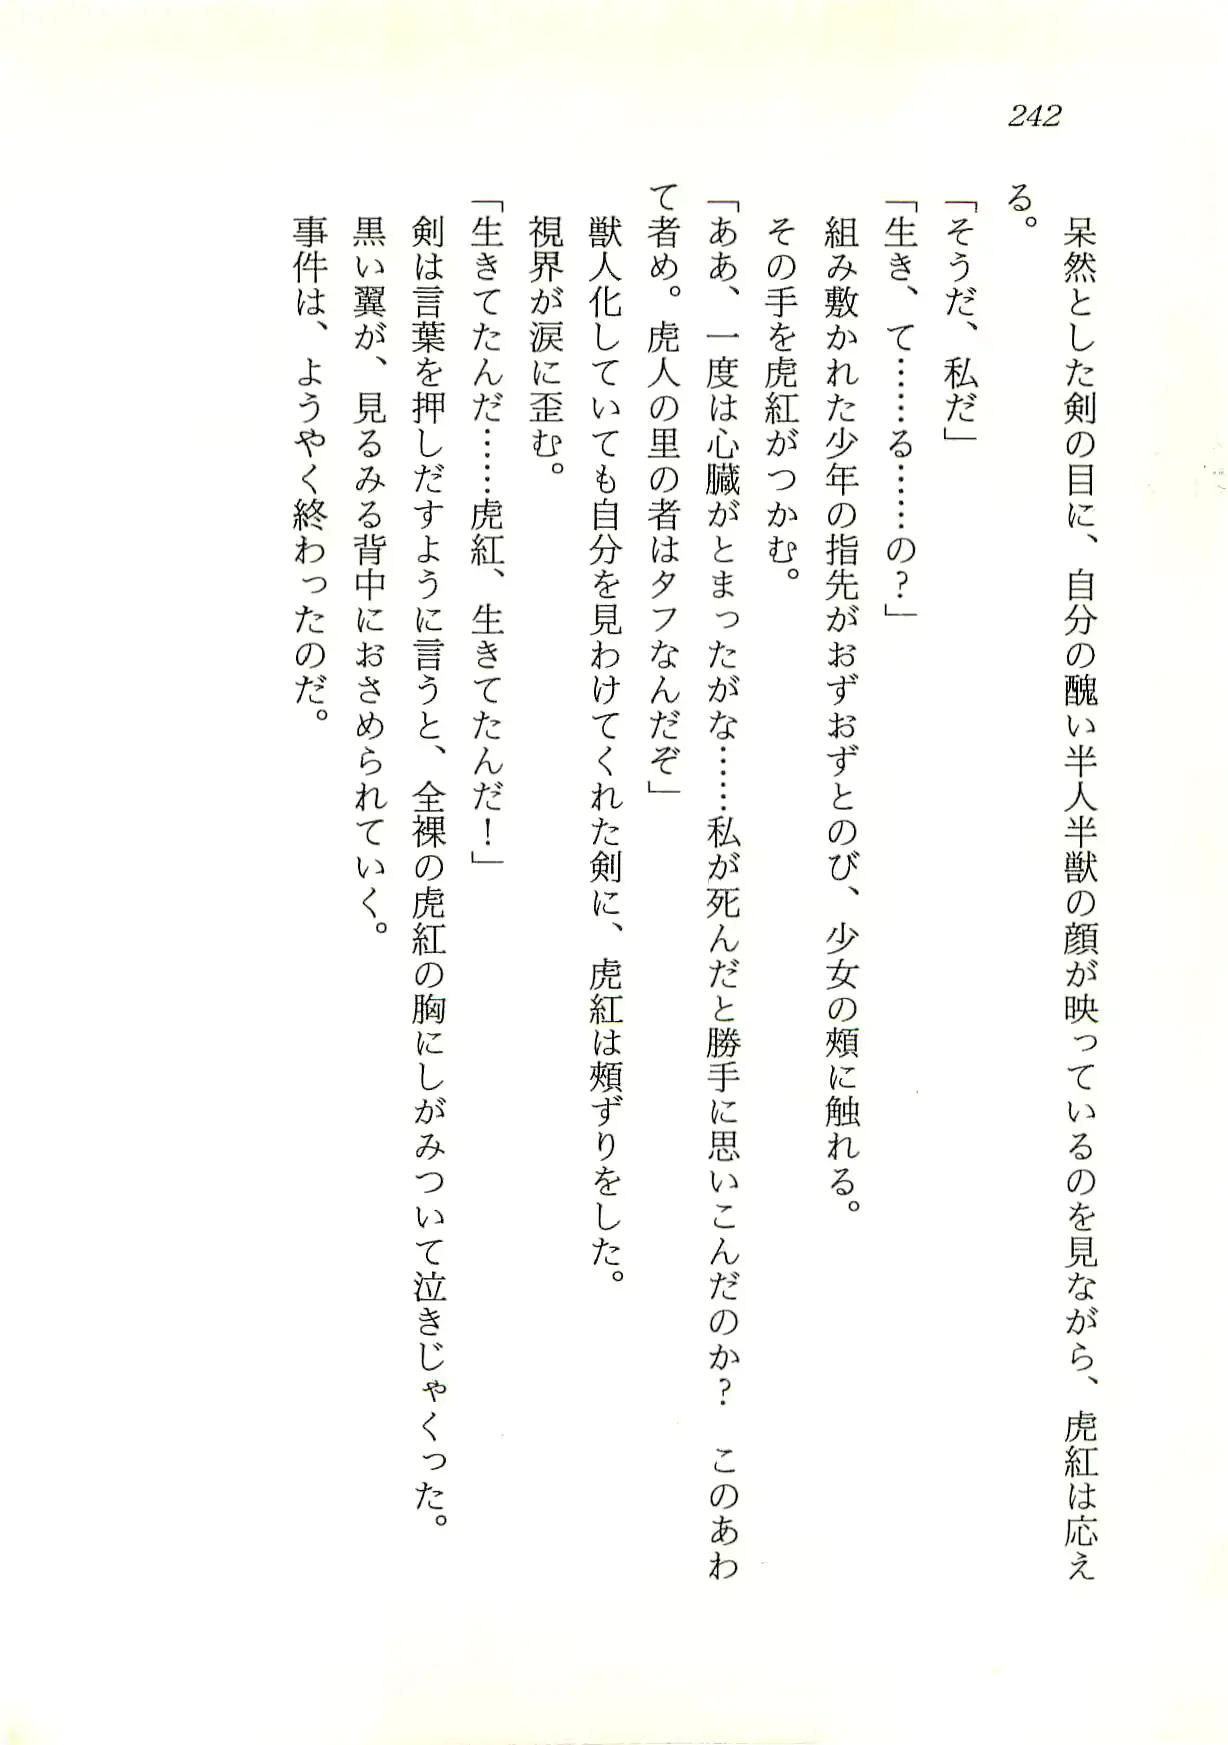 242
呆然とした剣の目に、自分の醜い半人半獣の顔が映っているのを見ながら、虎紅は応え
る。
「そうだ、私だ」
「生き、て……る……の？」
組み敷かれた少年の指先がおずおずとのび、少女の頰に触れる。
その手を虎紅がつかむ。
「ああ、一度は心臓がとまったがな……私が死んだと勝手に思いこんだのか？　このあわ
て者め。虎人の里の者はタフなんだぞ」
獣人化していても自分を見わけてくれた剣に、虎紅は頰ずりをした。
視界が涙に歪む。
「生きてたんだ……虎紅、生きてたんだ！」
剣は言葉を押しだすように言うと、全裸の虎紅の胸にしがみついて泣きじゃくった。
黒い翼が、見るみる背中におさめられていく。
事件は、ようやく終わったのだ。